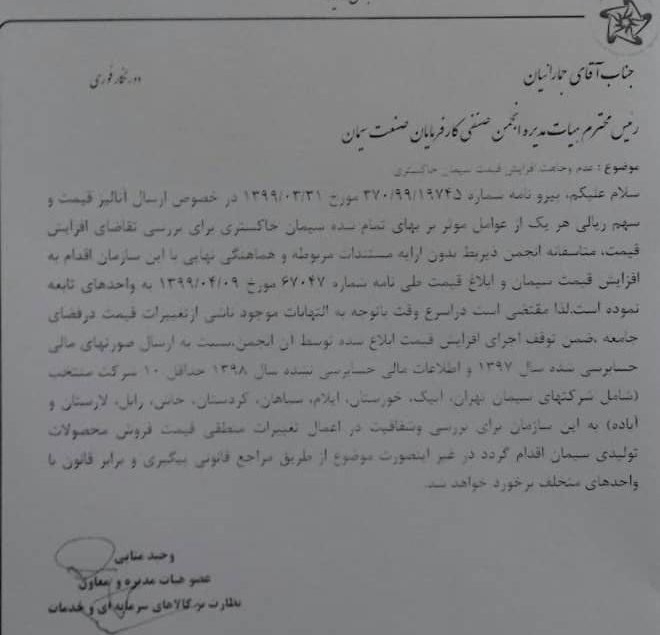 جناب آقای جمارانیان
دورنگار فوری
رئیس محترم هیات مدیره انجمن صنفی کارفرمایان صنعت سیمان
موضوع : عدم وجاهت افزایش قیمت سیمان خاکستری
سلام علیکم، پیرو نامه شماره ۳۷۰/۹۹/۱۹۷۴۵ مورخ ۱۳۹۹/۰۳/۳۱ در خصوص ارسال آنالیز قیمت و
سهم ریالی هر یک از عوامل موثر بر بهای تمام شده سیمان خاکستری برای بررسی تقاضای افزایش
قیمت، متاسفانه انجمن ذیربط بدون ارایه مستندات مربوطه و هماهنگی نهایی با این سازمان اقدام به
افزایش قیمت سیمان و ابلاغ قیمت طی نامه شماره ۶۷۰۴۷ مورخ ۱۳۹۹/۰۴/۰۹ به واحدهای تابعه
نموده است.لذا مقتضی است دراسرع وقت باتوجه به التهابات موجود ناشی ازتغییرات قیمت درفضای
جامعه ،ضمن توقف اجرای افزایش قیمت ابلاغ شده توسط آن انجمن،نسبت به ارسال صورتهای مالی
حسابرسی شده سال ۱۳۹۷ و اطلاعات مالی حسابرسی نشده سال ۱۳۹۸ حداقل ۱۰ شرکت منتخب
(شامل شرکتهای سیمان تهران، آبیک، خوزستان، ایلام، سپاهان، کردستان، خاش، زابل، لارستان و
آباده) به این سازمان برای بررسی وشفافیت در اعمال تغییرات منطقی قیمت فروش محصولات
تولیدی سیمان اقدام گردد در غیر اینصورت موضوع از طریق مراجع قانونی پیگیری و برابر قانون با
واحدهای متخلف برخورد خواهد شد.
وحید منایی
عضو هیات مدیره و معاون
نظارت بر کالاهای سرمایه ای و خدمات